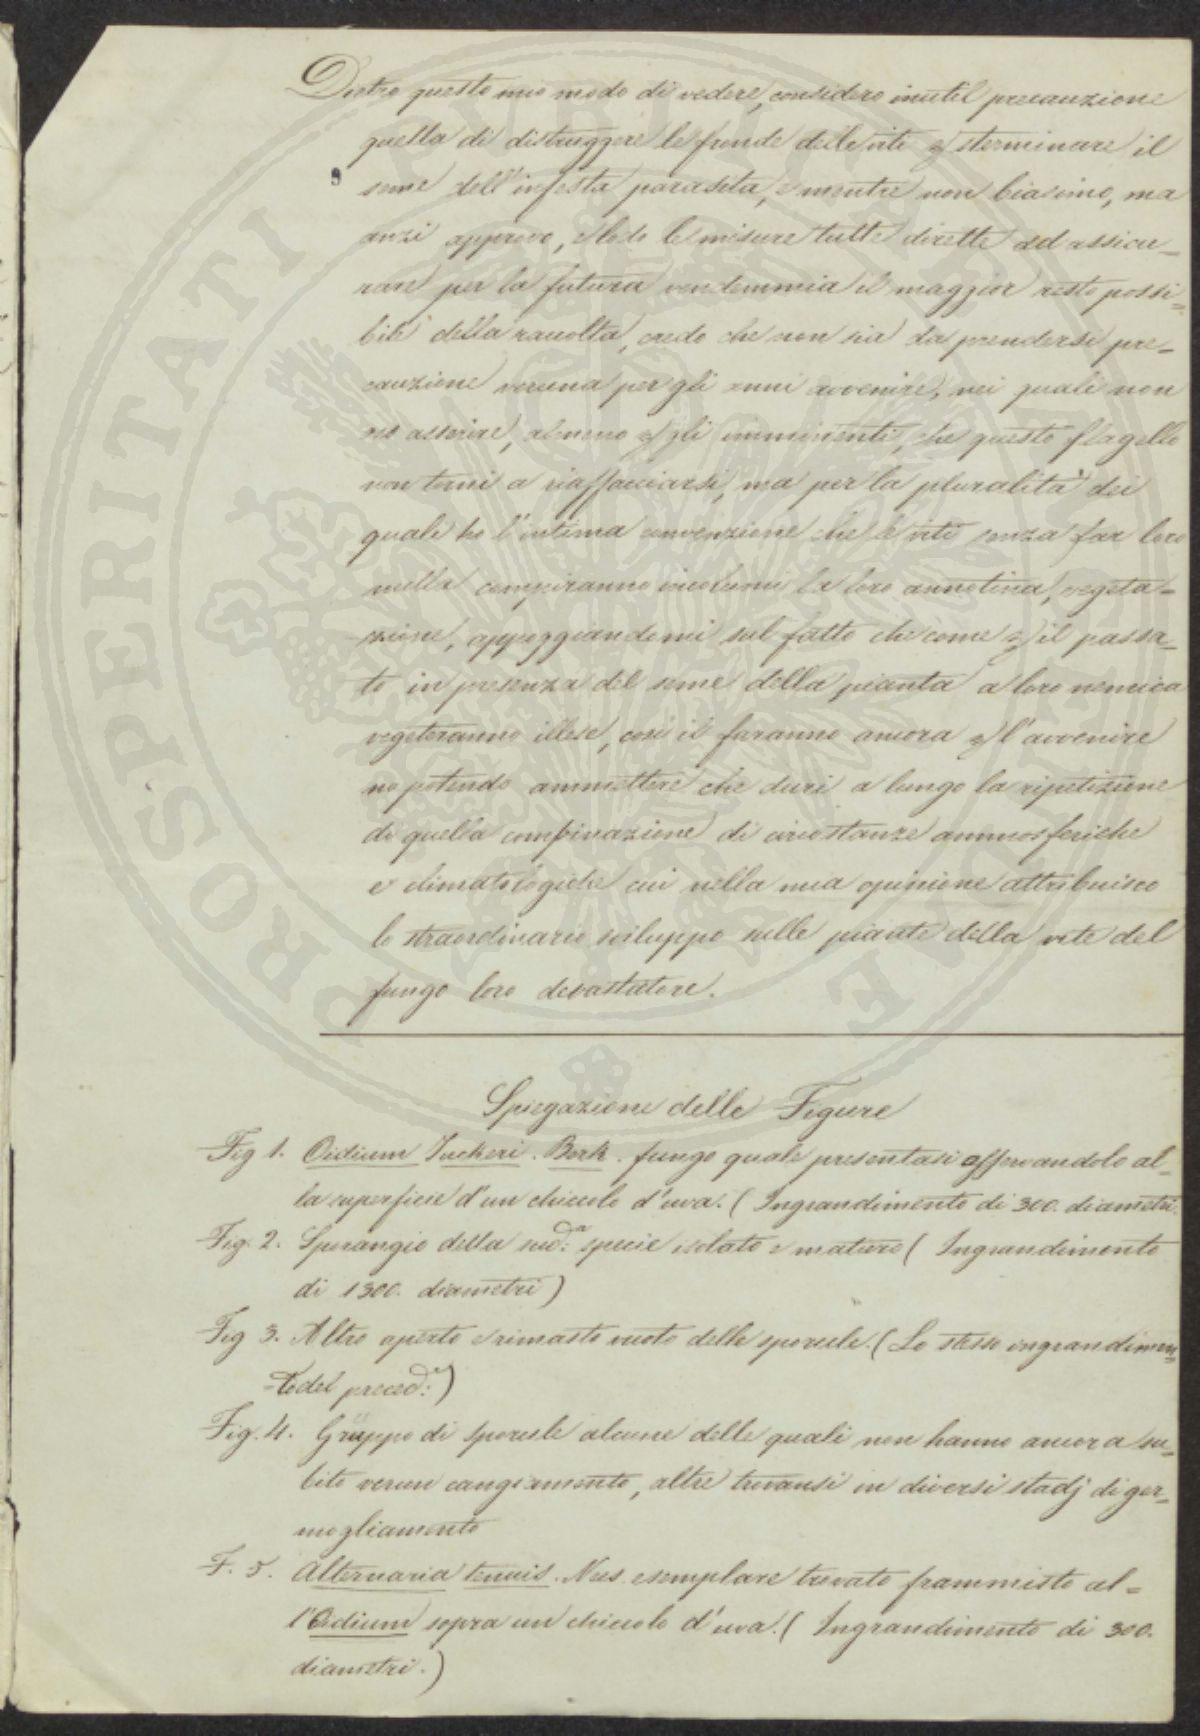 Dietro questo mio modo di vedere, considero inutil precauzione
quella di distruggere le fronde delle viti p sterminare il
seme dell'infesta parasita, e mentre non biasimo, ma
anzi approvo, e lodo le misure tutte dirette ad assicu-
rare per la futura vendemmia il maggior resto possi-
bile della raccolta, credo che non sia da prendersi pre-
cauzione veruna per gli anni avvenire, nei quali non
no asserire, almeno p gli imminenti, che questo flagello
non torni a riaffacciarsi, ma per la pluralità dei
quali ho l'intima convenzione che le viti senza far loro
nulla compiranno incolumi la loro annotina, vegeta-
zione, appoggiandomi sul fatto che come p il passa-
to in presenza del seme della pianta a loro nemica
vegeteranno illese, così il faranno ancora p l'avvenire
no potendo ammettere che duri a lungo la ripetizione
di quella combinazione di circostanze ammosferiche
e climatologiche cui nella mia opinione attribuisco
lo straordinario sviluppo sulle piante della vite del
fungo loro devastatore.
Spiegazione delle Figure
Fig 1. Oidium Tuckeri. Berk. fungo quale presentasi osservandolo al-
la superficie d'un chiccolo d'uva. (Ingrandimento di 300. diametri
Fig. 2. Sporangio della sud:a specie isolato e maturo (Ingrandimento
di 1300. diametri)
Fig 3. Altro aperto e rimasto vuoto delle sporule. (Lo stesso ingrandimen-
=to del preced:e)
Fig. 4. Gruppo di sporule alcune delle quali non hanno ancora su-
bito verun cangiamento, altre trovansi in diversi stadj di ger-
mogliamento
F. 5. Alternaria tenuis. Nees. esemplare trovato frammisto al-
l'Oidium sopra un chiccolo d'uva. (Ingrandimento di 300.
diametri.)
PROSPERITATI PUBLICAE AUGENDAE